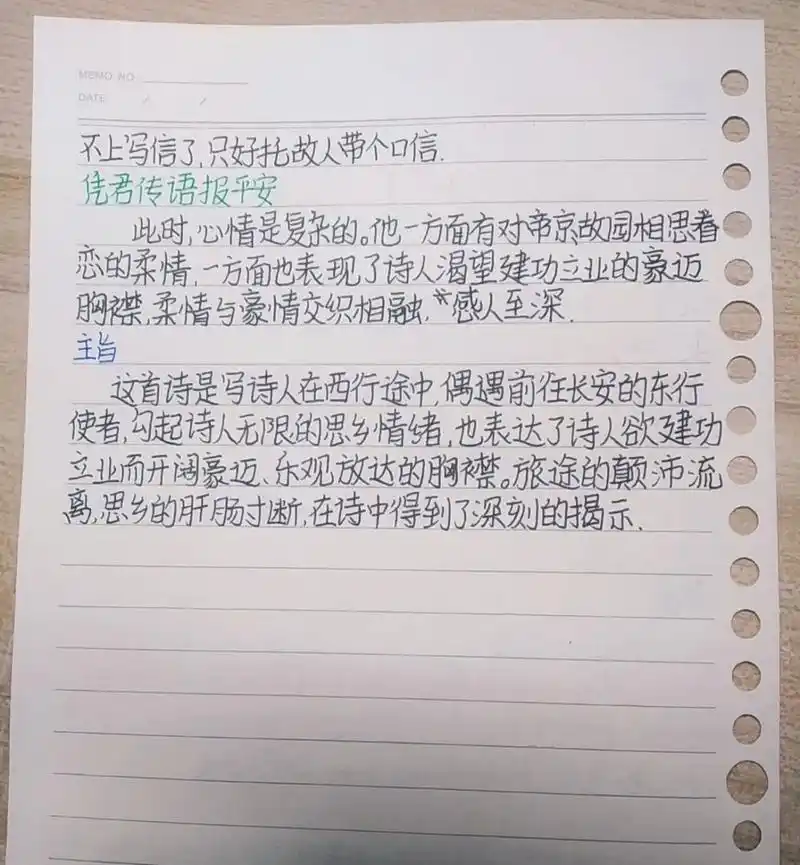 MEMO NO.
DATE / /
不上写信了,只好托故人带个口信.
凭君传语报平安
此时,心情是复杂的。他一方面有对帝京故园相思眷
恋的柔情,一方面也表现了诗人渴望建功立业的豪迈
胸襟,柔情与豪情交织相融,感人至深.
主旨
这首诗是写诗人在西行途中,偶遇前往长安的东行
使者,勾起诗人无限的思乡情绪,也表达了诗人欲建功
立业而开阔豪迈、乐观放达的胸襟。旅途的颠沛流
离,思乡的肝肠寸断,在诗中得到了深刻的揭示.